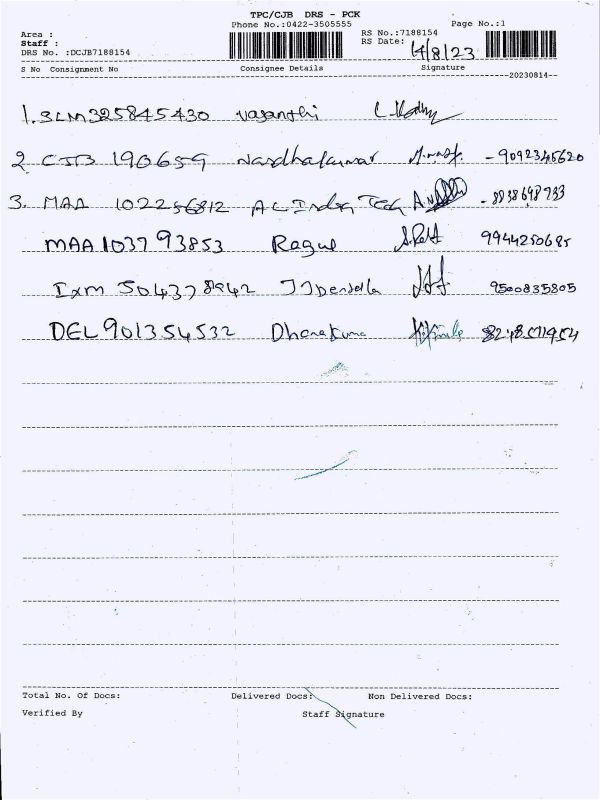 TPC/CJB DRS - PCK
Area : Phone No.:0422-3505555 Page No.:1
Staff : RS No.:7188154
DRS No. :DCJB7188154 RS Date: 14/8/23
S No Consignment No Consignee Details Signature
--20230814--
1. SLM325845430 Vasanthi
2. CJB 190659 Nandhakumar - 9092345620
3. MAA 102256812 - 8838698733
MAA 103793853 Ragul 9944250685
IXM 504378942 9500835805
DEL 901354532 Dhanakumar
Total No. Of Docs: Delivered Docs: Non Delivered Docs:
Verified By Staff Signature